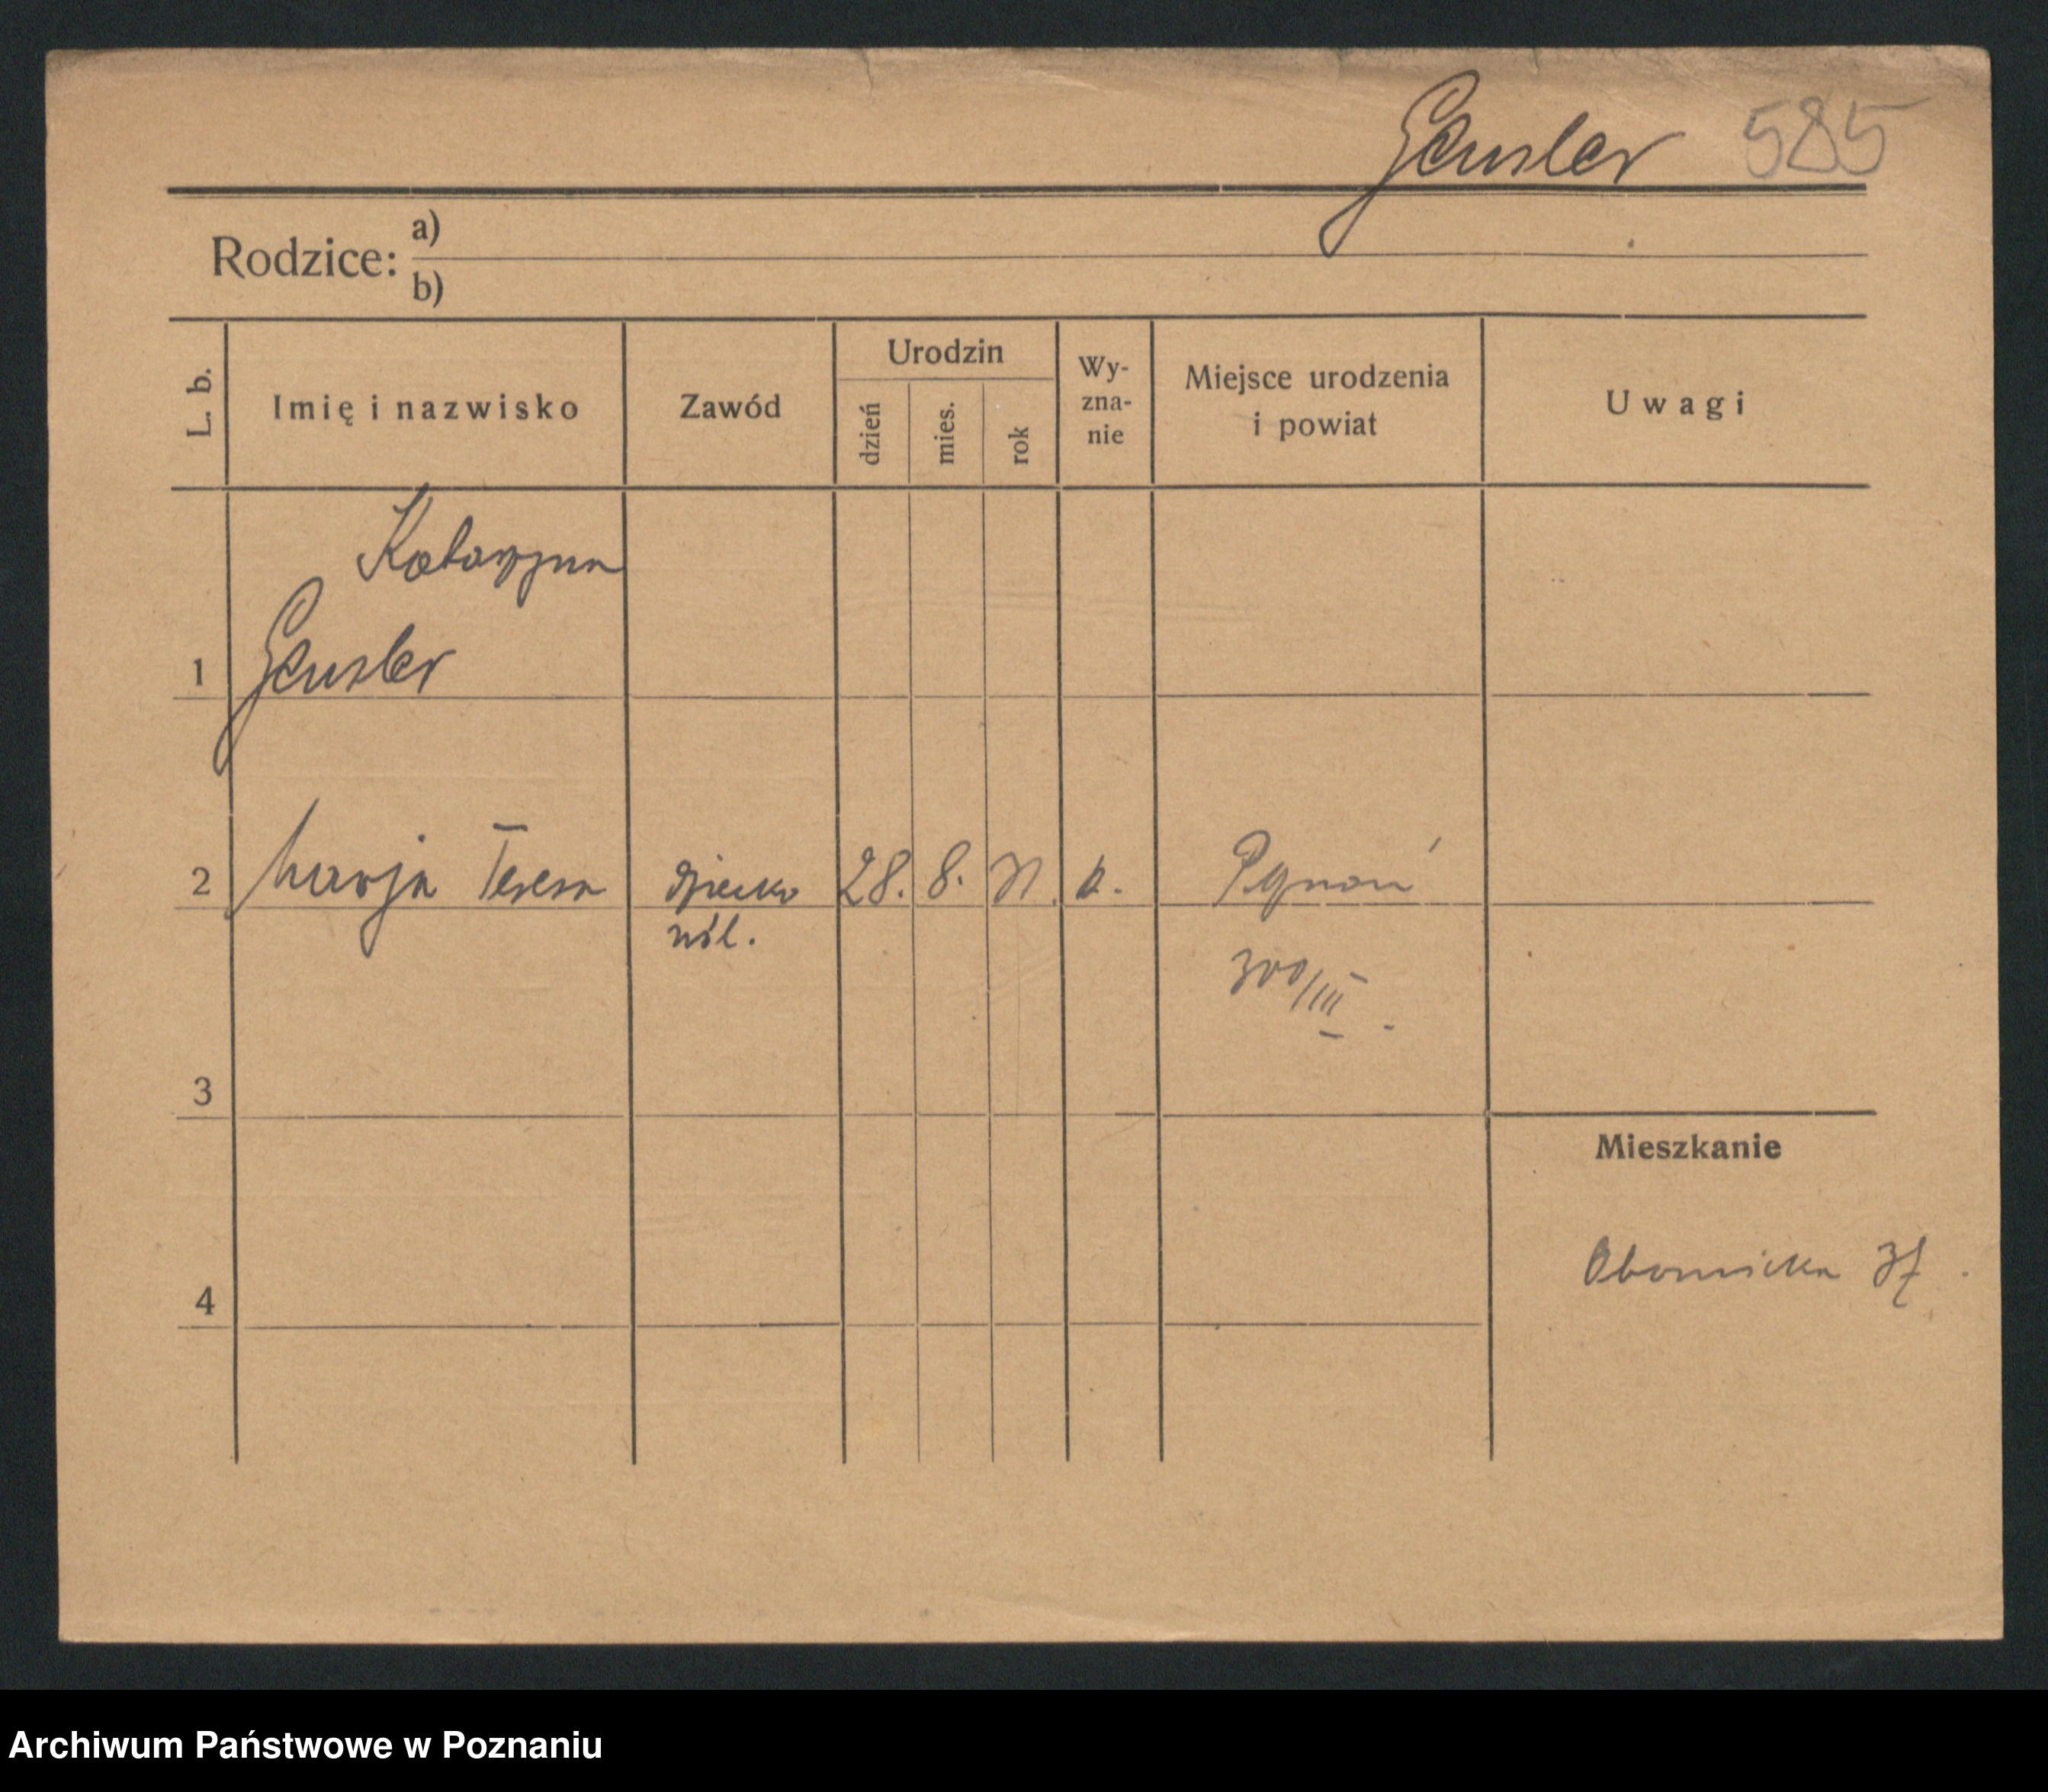 Gensler 585
Rodzice: a)
b)
L. b.
Imię i nazwisko
Zawód
Urodzin
dzień
mies.
rok
Wy-
zna-
nie
Miejsce urodzenia
i powiat
Uwagi
Katarzyna
1 Gensler
2 Marja Teresa dziecko 28. 8. 31. k. Poznań
nśl.
300/III
3
Mieszkanie
Obornicka
4
Archiwum Państwowe w Poznaniu